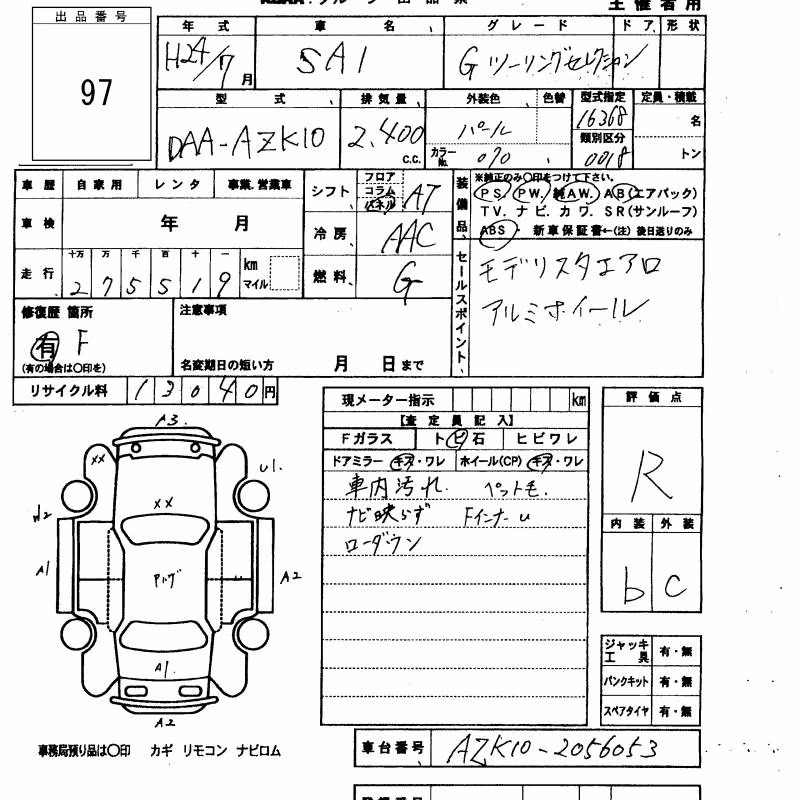 主催者用
出品番号
97
年式 車名 グレード ドア 形状
H24/7月 SAI G ツーリングセレクション
型式 排気量 外装色 色替 型式指定 定員・積載
DAA-AZK10 2.400 c.c. パール 16368 名
カラーNo. 070 類別区分 0018 トン
車歴 自家用 レンタ 事業、営業車
車検 年 月
走行 十万 万 千 百 十 一 km マイル
2 7 5 5 1 9
シフト フロア コラム パネル AT
冷房 AAC
燃料 G
装備品 ※純正のみ〇印をつけて下さい。
PS. PW. 純AW. AB(エアバック)
TV. ナビ. カワ. SR(サンルーフ)
ABS・ 新車保証書←(注)後日送りのみ
セールスポイント
モデリスタエアロ
アルミホイール
修復歴 箇所
有 F
(有の場合は〇印を)
注意事項
名変期日の短い方 月 日まで
リサイクル料 13040円
現メーター指示 km
【査定員記入】
Fガラス トビ石 ヒビワレ
ドアミラー キズ・ワレ ホイール(CP) キズ・ワレ
車内汚れ. ペット毛.
ナビ映らず Fインナー U
ローダウン
評価点
R
内装 外装
b C
ジャッキ 工具 有・無
パンクキット 有・無
スペアタイヤ 有・無
A3.
XX
U1.
XX
W2
A1
A2
A1.
A2
事務局預り品は〇印 カギ リモコン ナビロム
車台番号 AZK10-2056053